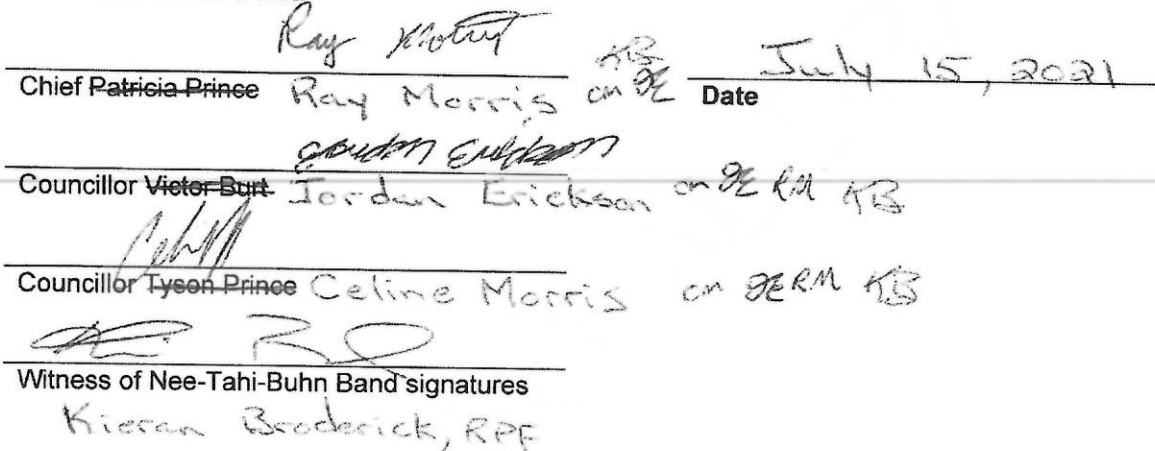 Ray Morris KB
Chief Patricia Prince Ray Morris cm JE Date July 15, 2021
Jordan Erickson
Councillor Victor Burt Jordan Erickson cm JE RM KB
Councillor Tyson Prince Celine Morris cm JE RM KB
Witness of Nee-Tahi-Buhn Band signatures
Kieran Broderick, RPF